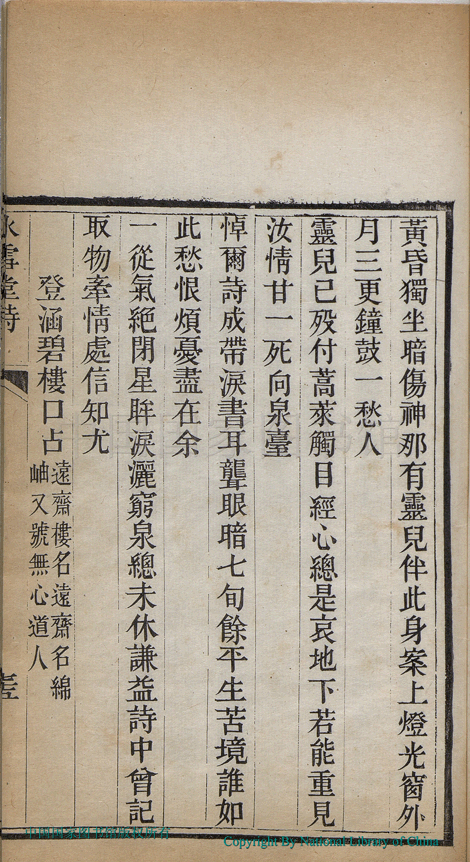 黃昏獨坐暗傷神那有靈兒伴此身案上燈光窗外
月三更鐘鼓一愁人
靈兒已歿付蒿萊觸目經心總是哀地下若能重見
汝情甘一死向泉臺
悼爾詩成帶淚書耳聾眼暗七旬餘平生苦境誰如
此愁恨煩憂盡在余
一從氣絕閉星眸淚灑窮泉總未休謙益詩中曾記
取物牽情處信知尤
登涵碧樓口占遠齋樓名遠齋名綿
岫又號無心道人
冰雪堂詩
中國國家圖書館版權所有
Copyright By National Library of China